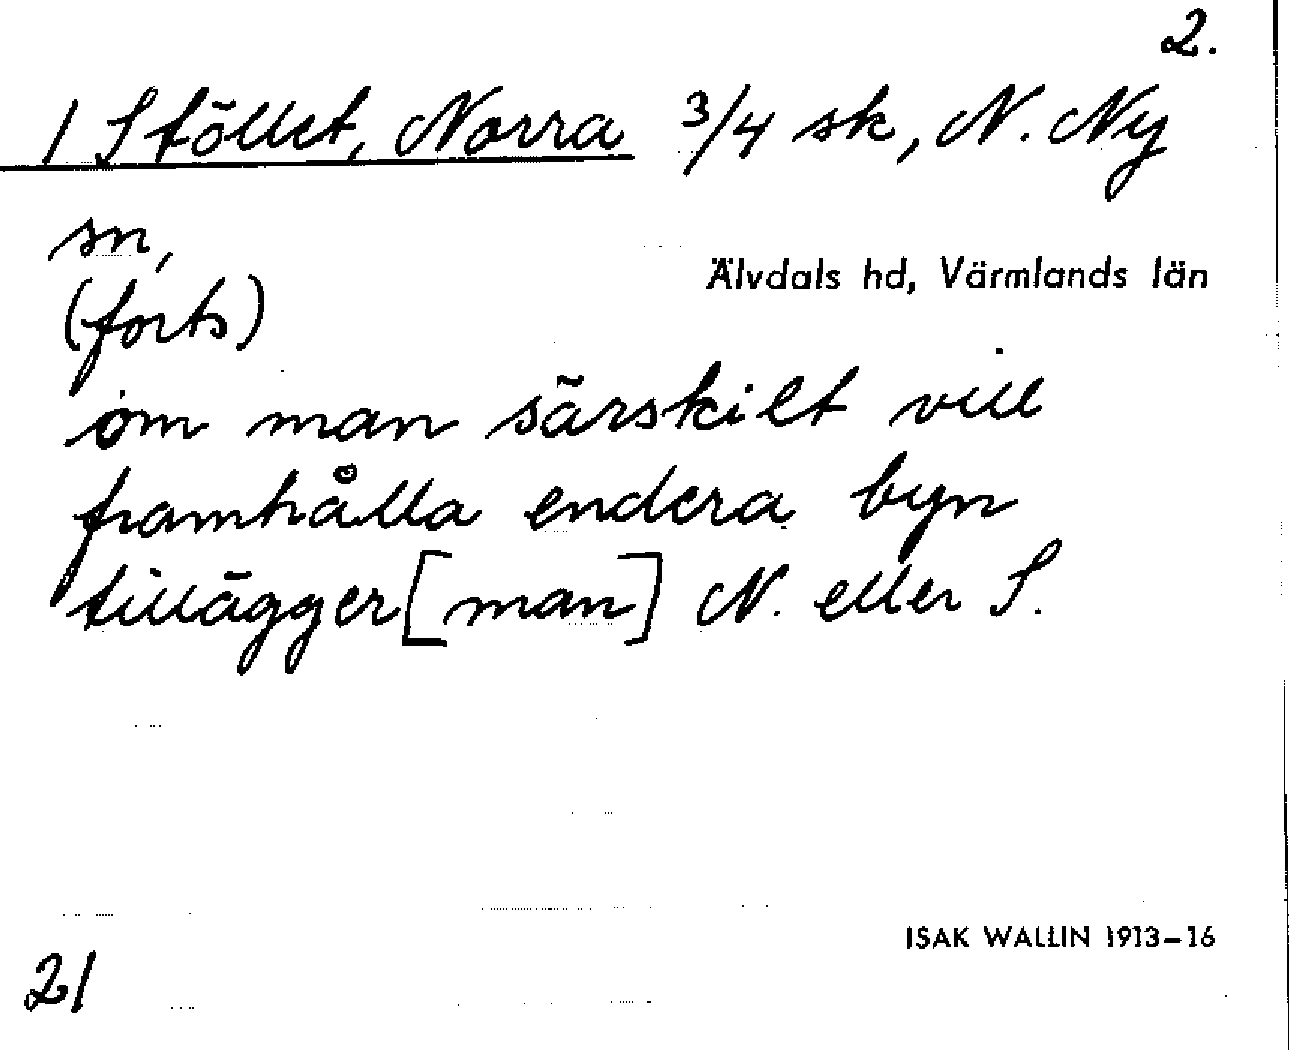 2.
1 Stöllet, Norra 3/4 sk, N. Ny
sn,
Älvdals hd, Värmlands län
(forts)
om man särskilt vill
framhålla endera byn
tillägger [man] N. eller S.
ISAK WALLIN 1913-16
21